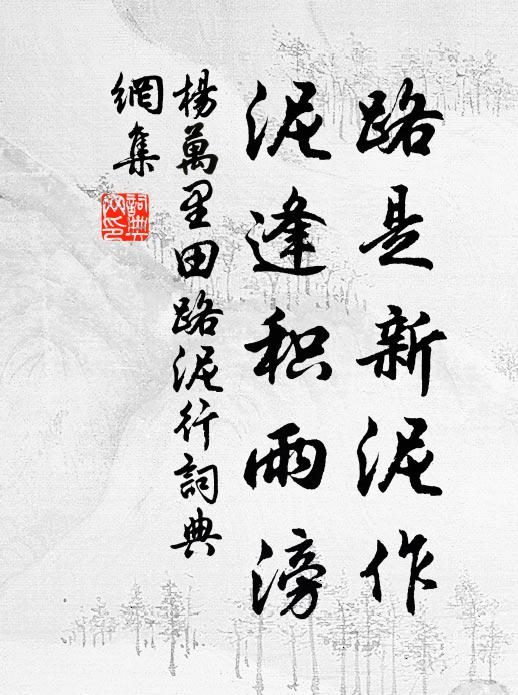 路是新泥作
泥逢积雨滂
楊萬里田路泥行詞典
網集
詞典
网印